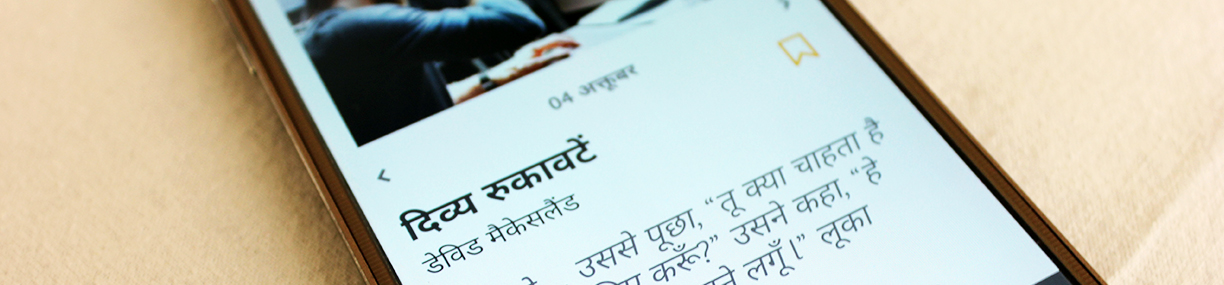 04 अक्तूबर
दिव्य रुकावटें
डेविड मैकेसलैंड
उससे पूछा, “तू क्या चाहता है
करूँ?” उसने कहा, “हे
लगूँ।” लूका